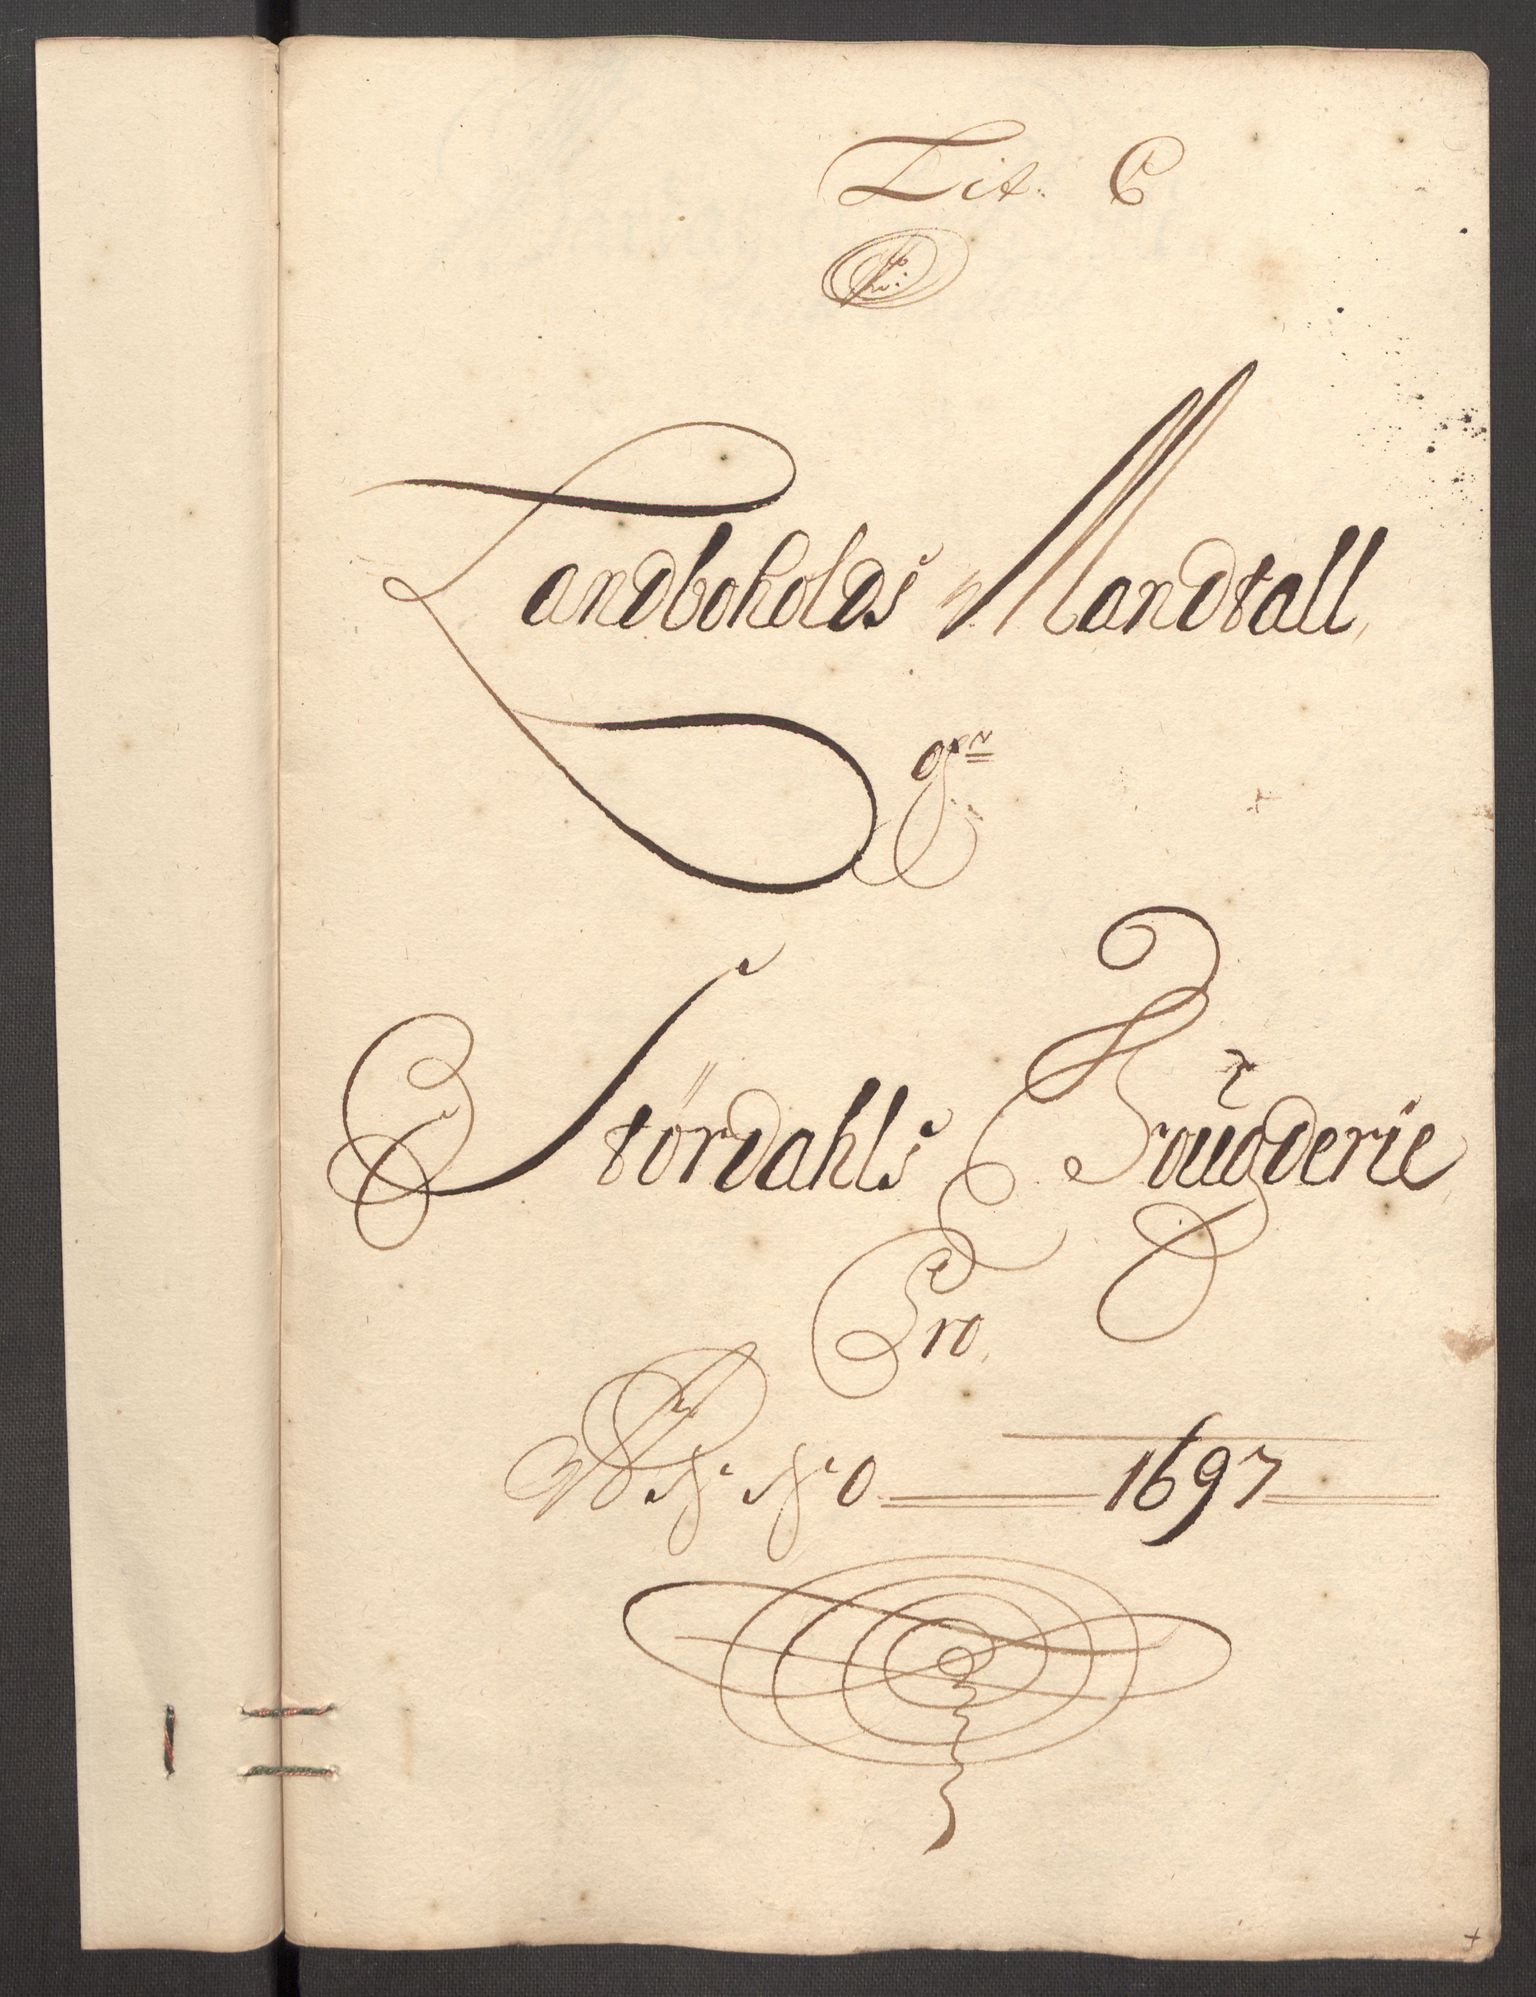 Lit. C
Landboholds Mandtall
Størdahls Fougderie
Pro
Anno 1697